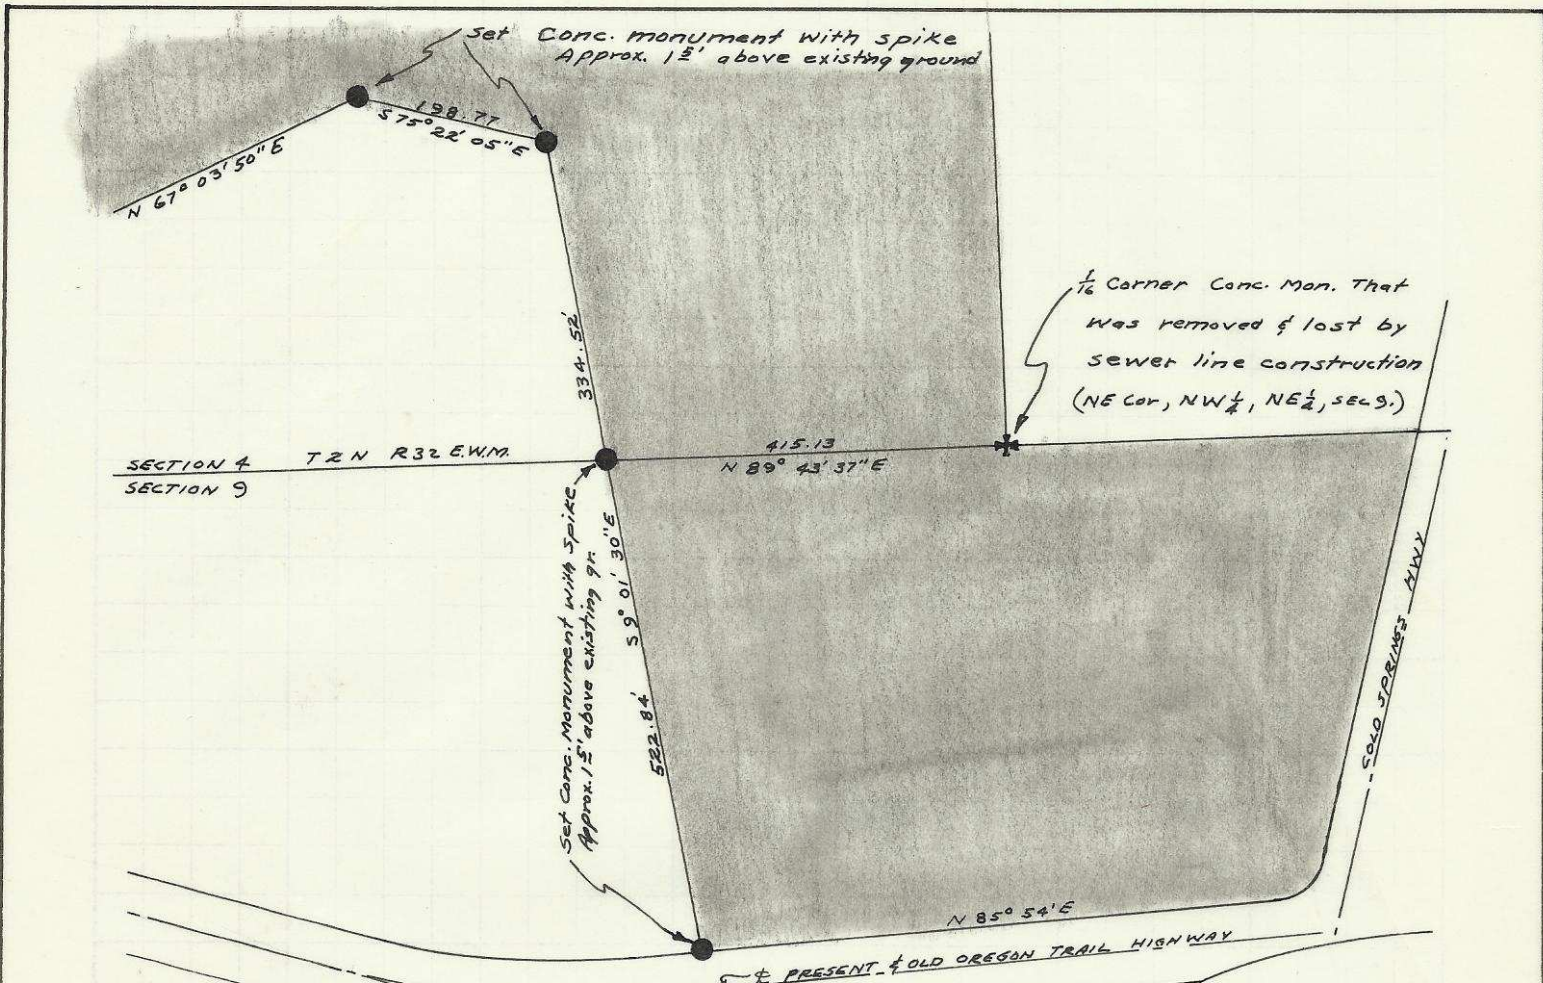 Set Conc. monument with spike
Approx. 1 5' above existing ground
198.77
S 75° 22' 05" E
N 67° 03' 50" E
334.52'
1/16 Corner Conc. Mon. That
was removed & lost by
sewer line construction
(NE Cor, NW 1/4, NE 1/4, sec 9.)
SECTION 4 T2N R32 E.W.M.
SECTION 9
415.13
N 89° 43' 37" E
Set Conc. Monument with Spike
Approx. 1 5' above existing gr.
S 9° 01' 30" E
522.84'
COLD SPRINGS HWY
N 85° 54' E
℄ PRESENT & OLD OREGON TRAIL HIGHWAY